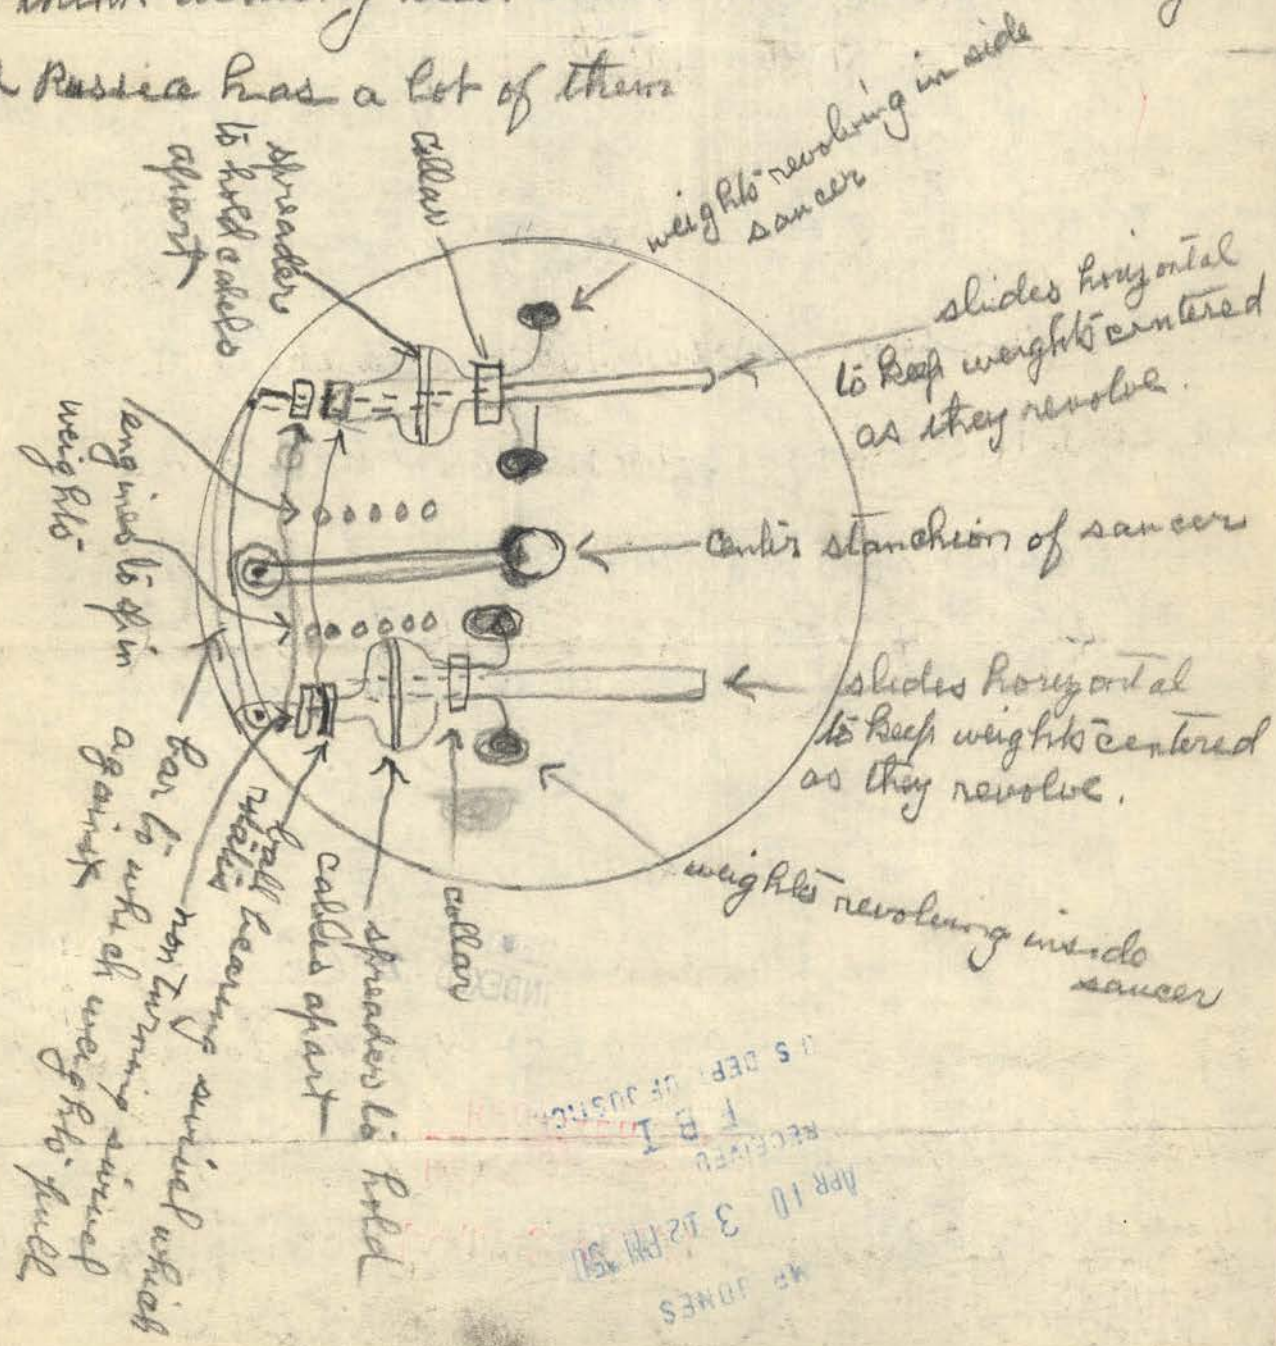 Russia has a lot of them
spreader
to hold cabels
apart
collar
weights revolving in side
saucer
slides horizontal
to keep weights centered
as they revolve.
engines to spin
weights
center stanchion of saucer
slides horizontal
to keep weights centered
as they revolve.
weights revolving inside
saucer
collar
spreader to hold
cables apart
ball bearing swivel which
non turning swivel
bar to which
against which weights pull
U S DEPT OF JUSTICE
F B I
RECEIVED
APR 10 3 12 PM '50
MR JONES
INDEXED